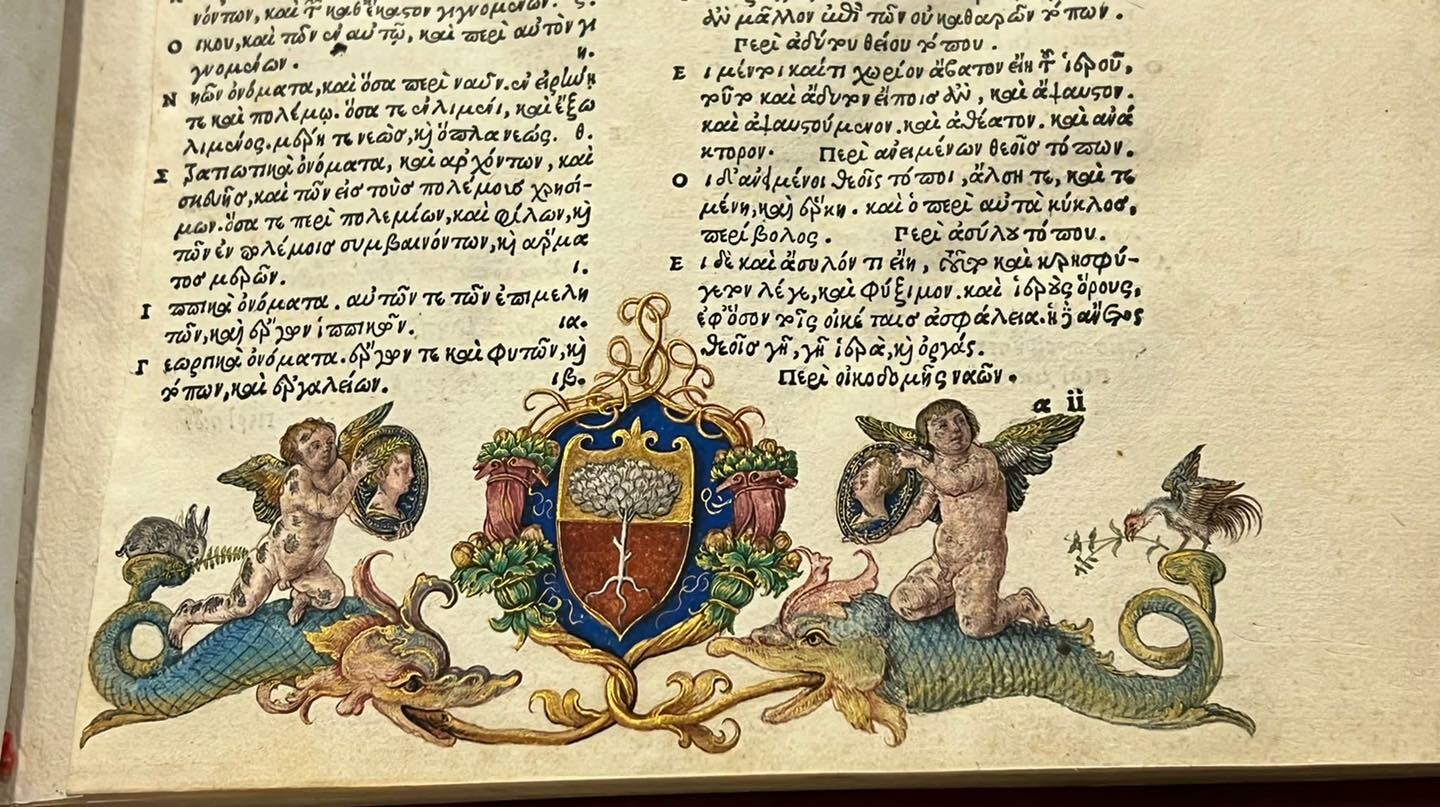 νόντων, καὶ τῶν καθ' ἕκαστον γιγνομένων. ζ.
Οἴκου, καὶ τῶν ἐν αὐτῷ, καὶ περὶ αὐτὸν γι
γνομένων. η.
Νηῶν ὀνόματα, καὶ ὅσα περὶ ναῦν. ἐν εἰρήνῃ
τε καὶ πολέμῳ. ὅσα τε ἐν λιμένι, καὶ ἔξω
λιμένος. μέρη τε νεὼς, καὶ ὅπλα νεώς. θ.
Στρατιωτικὰ ὀνόματα, καὶ ἀρχόντων, καὶ
σκευῆς, καὶ τῶν εἰς τοὺς πολέμοις χρησί-
μων. ὅσα τε περὶ πολεμίων, καὶ φίλων, καὶ
τῶν ἐν πολέμοις συμβαινόντων, καὶ ἅρμα
τος μερῶν. ι.
Ἱππικὰ ὀνόματα. αὐτῶν τε τῶν ἐπιμελη
τῶν, καὶ ἔργων ἱππικῶν. ια.
Γεωργικὰ ὀνόματα. ἔργων τε καὶ φυτῶν, καὶ
τόπων, καὶ ἐργαλείων. ιβ.
ἂν μᾶλλον ἐπὶ τῶν οὐ καθαρῶν τόπων.
Περὶ ἀδύτου θείου τόπου.
Εἰ μέντοι καί τι χωρίον ἄβατον εἴη τοῦ ἱεροῦ,
τοῦτο καὶ ἄδυτον εἴποις ἂν, καὶ ἄψαυστον.
καὶ ἀψαυστούμενον. καὶ ἀθέατον. καὶ ἀνά
κτορον. Περὶ ἀνειμένων θεοῖς τόπων.
Οἱ δ' ἀνειμένοι θεοῖς τόποι, ἄλση τε, καὶ τε
μένη, καὶ ἕρκη. καὶ ὁ περὶ αὐτὰ κύκλος,
περίβολος. Περὶ ἀσύλου τόπου.
Εἰ δὲ καὶ ἄσυλόν τι εἴη, τοῦτο καὶ κρησφύ-
γετον λέγε, καὶ φύξιμον. καὶ ἱεροὺς ὅρους,
ἐφ' ὅσον τοῖς οἰκέταις ἀσφάλεια. ἡ δὲ ἄνετος
θεοῖς γῆ, γῆ ἱερὰ, καὶ ὀργάς.
Περὶ οἰκοδομῆς ναῶν.
α ii